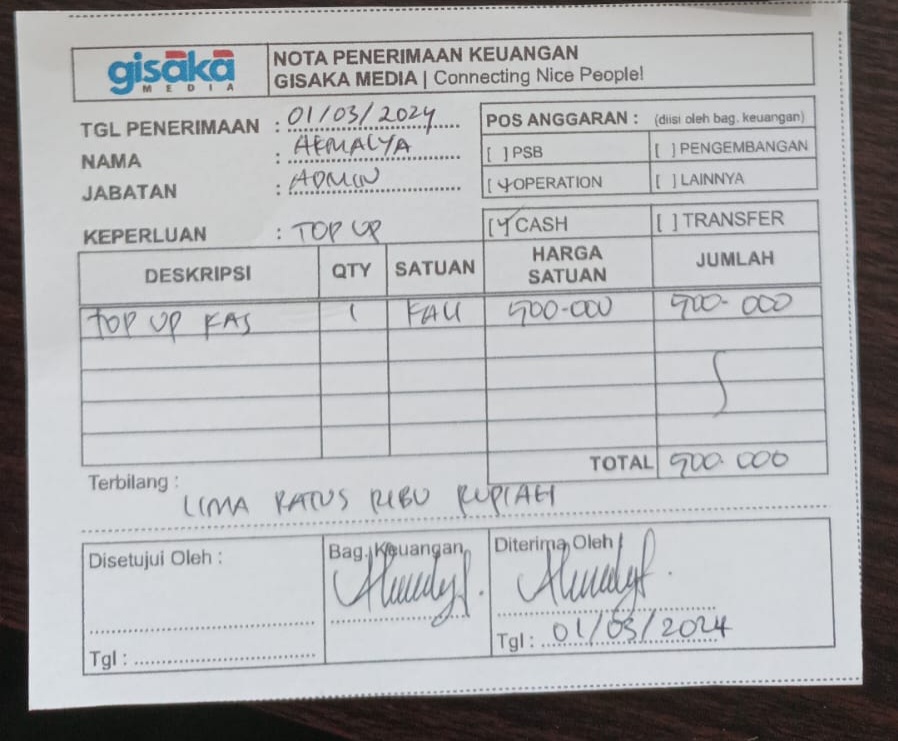 gisaka
MEDIA
NOTA PENERIMAAN KEUANGAN
GISAKA MEDIA | Connecting Nice People!
TGL PENERIMAAN : 01/03/2024
NAMA : HERMALYA
JABATAN : ADMIN
KEPERLUAN : TOP UP
POS ANGGARAN : (diisi oleh bag. keuangan)
[ ] PSB [ ] PENGEMBANGAN
[✓] OPERATION [ ] LAINNYA
[✓] CASH [ ] TRANSFER
DESKRIPSI QTY SATUAN HARGA SATUAN JUMLAH
TOP UP KAS 1 KALI 500.000 500.000
TOTAL 500.000
Terbilang :
LIMA RATUS RIBU RUPIAH
Disetujui Oleh : Bag. Keuangan Diterima Oleh
Tgl : Tgl : 01/03/2024